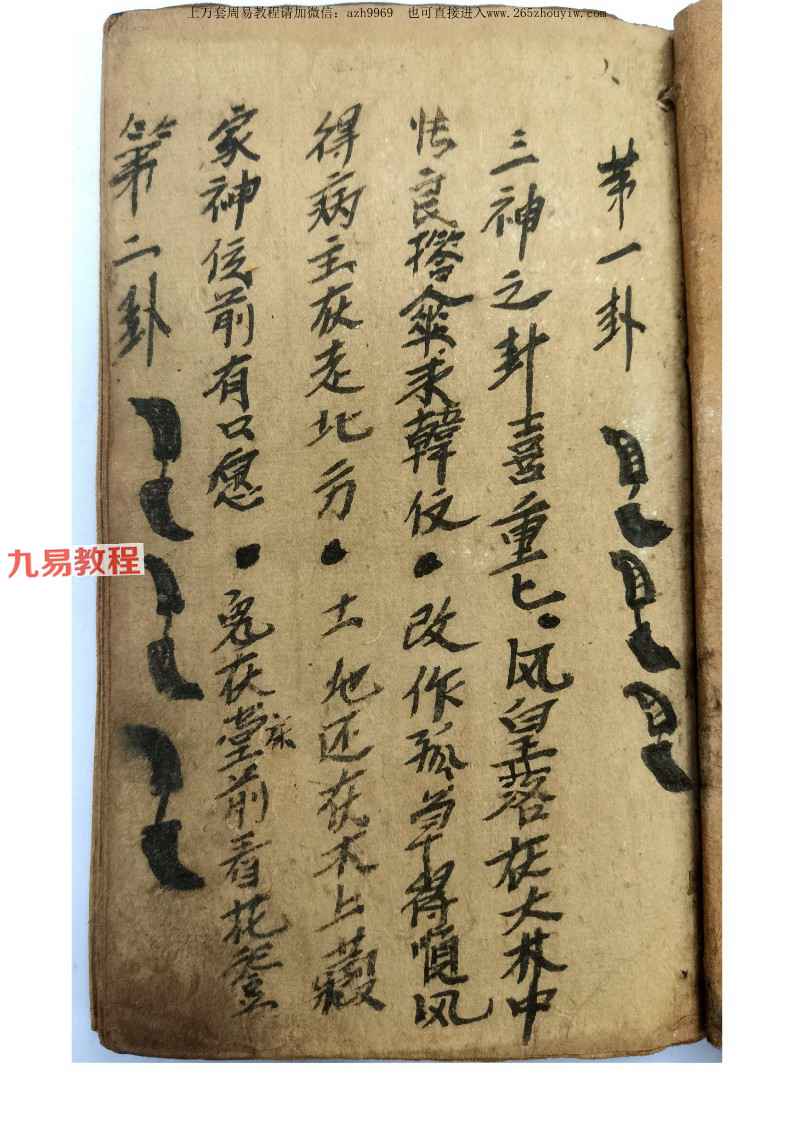 上万套周易教程请加微信：azh9969 也可直接进入www.265zhouyiw.com
第一卦
三神之卦喜重七。凤皇落在大林中
良撘伞求韓伩。改作孤舟得順风
得病主在走北方。土地还在木上藏
家神位前有口愿。鬼在堂前看花
第二卦
九易教程